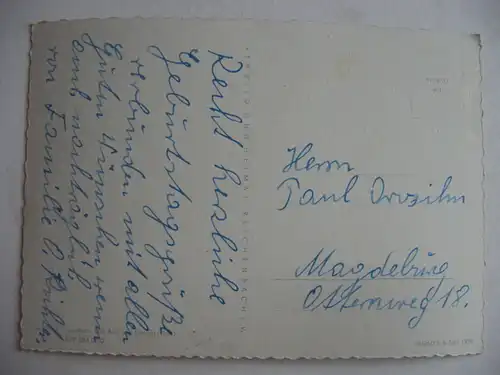 Recht herzliche
Geburtstagsgrüße
verbunden mit allen
Guten Wünschen wenn
auch nachträglich
von Familie O.
Herrn
Paul
Magdeburg
Otternweg 18.